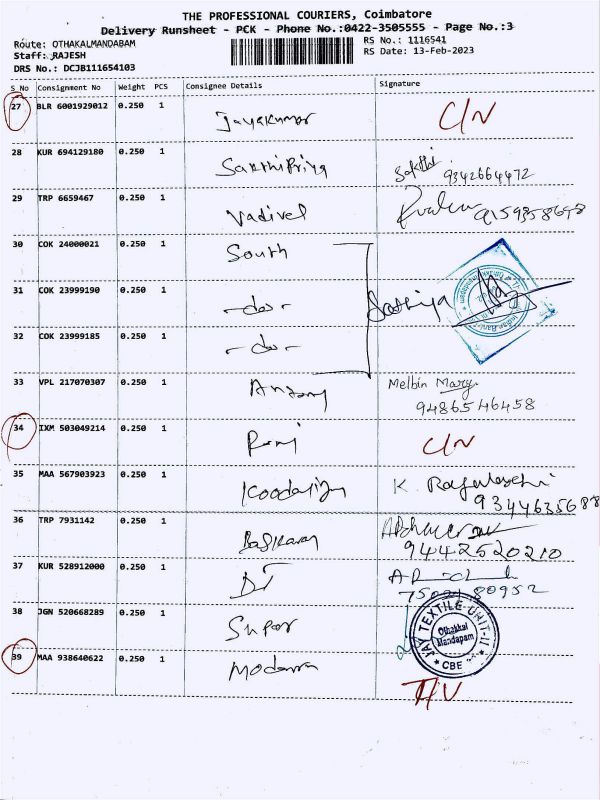 THE PROFESSIONAL COURIERS, Coimbatore
Delivery Runsheet - PCK - Phone No.:0422-3505555 - Page No.:3
Route: OTHAKALMANDABAM
RS No.: 1116541
Staff: RAJESH
RS Date: 13-Feb-2023
DRS No.: DCJB111654103
S_No Consignment No Weight PCS Consignee Details Signature
27 BLR 6001929012 0.250 1 Jayakumar C/N
28 KUR 694129180 0.250 1 SakthiPriya Sakthi 9342664472
29 TRP 6659467 0.250 1 Vadivel
30 COK 24000021 0.250 1 South
31 COK 23999190 0.250 1 -do- Sathiya
32 COK 23999185 0.250 1 -do-
33 VPL 217070307 0.250 1 Antony Melbin Mary
9486546458
34 IXM 503049214 0.250 1 C/N
35 MAA 567903923 0.250 1 K.
9344635688
36 TRP 7931142 0.250 1 Baskaran
9442520210
37 KUR 528912000 0.250 1
38 JGN 520668289 0.250 1 Super
JAY TEXTILE UNIT-II
Othakkal
Mandapam
CBE
39 MAA 938640622 0.250 1